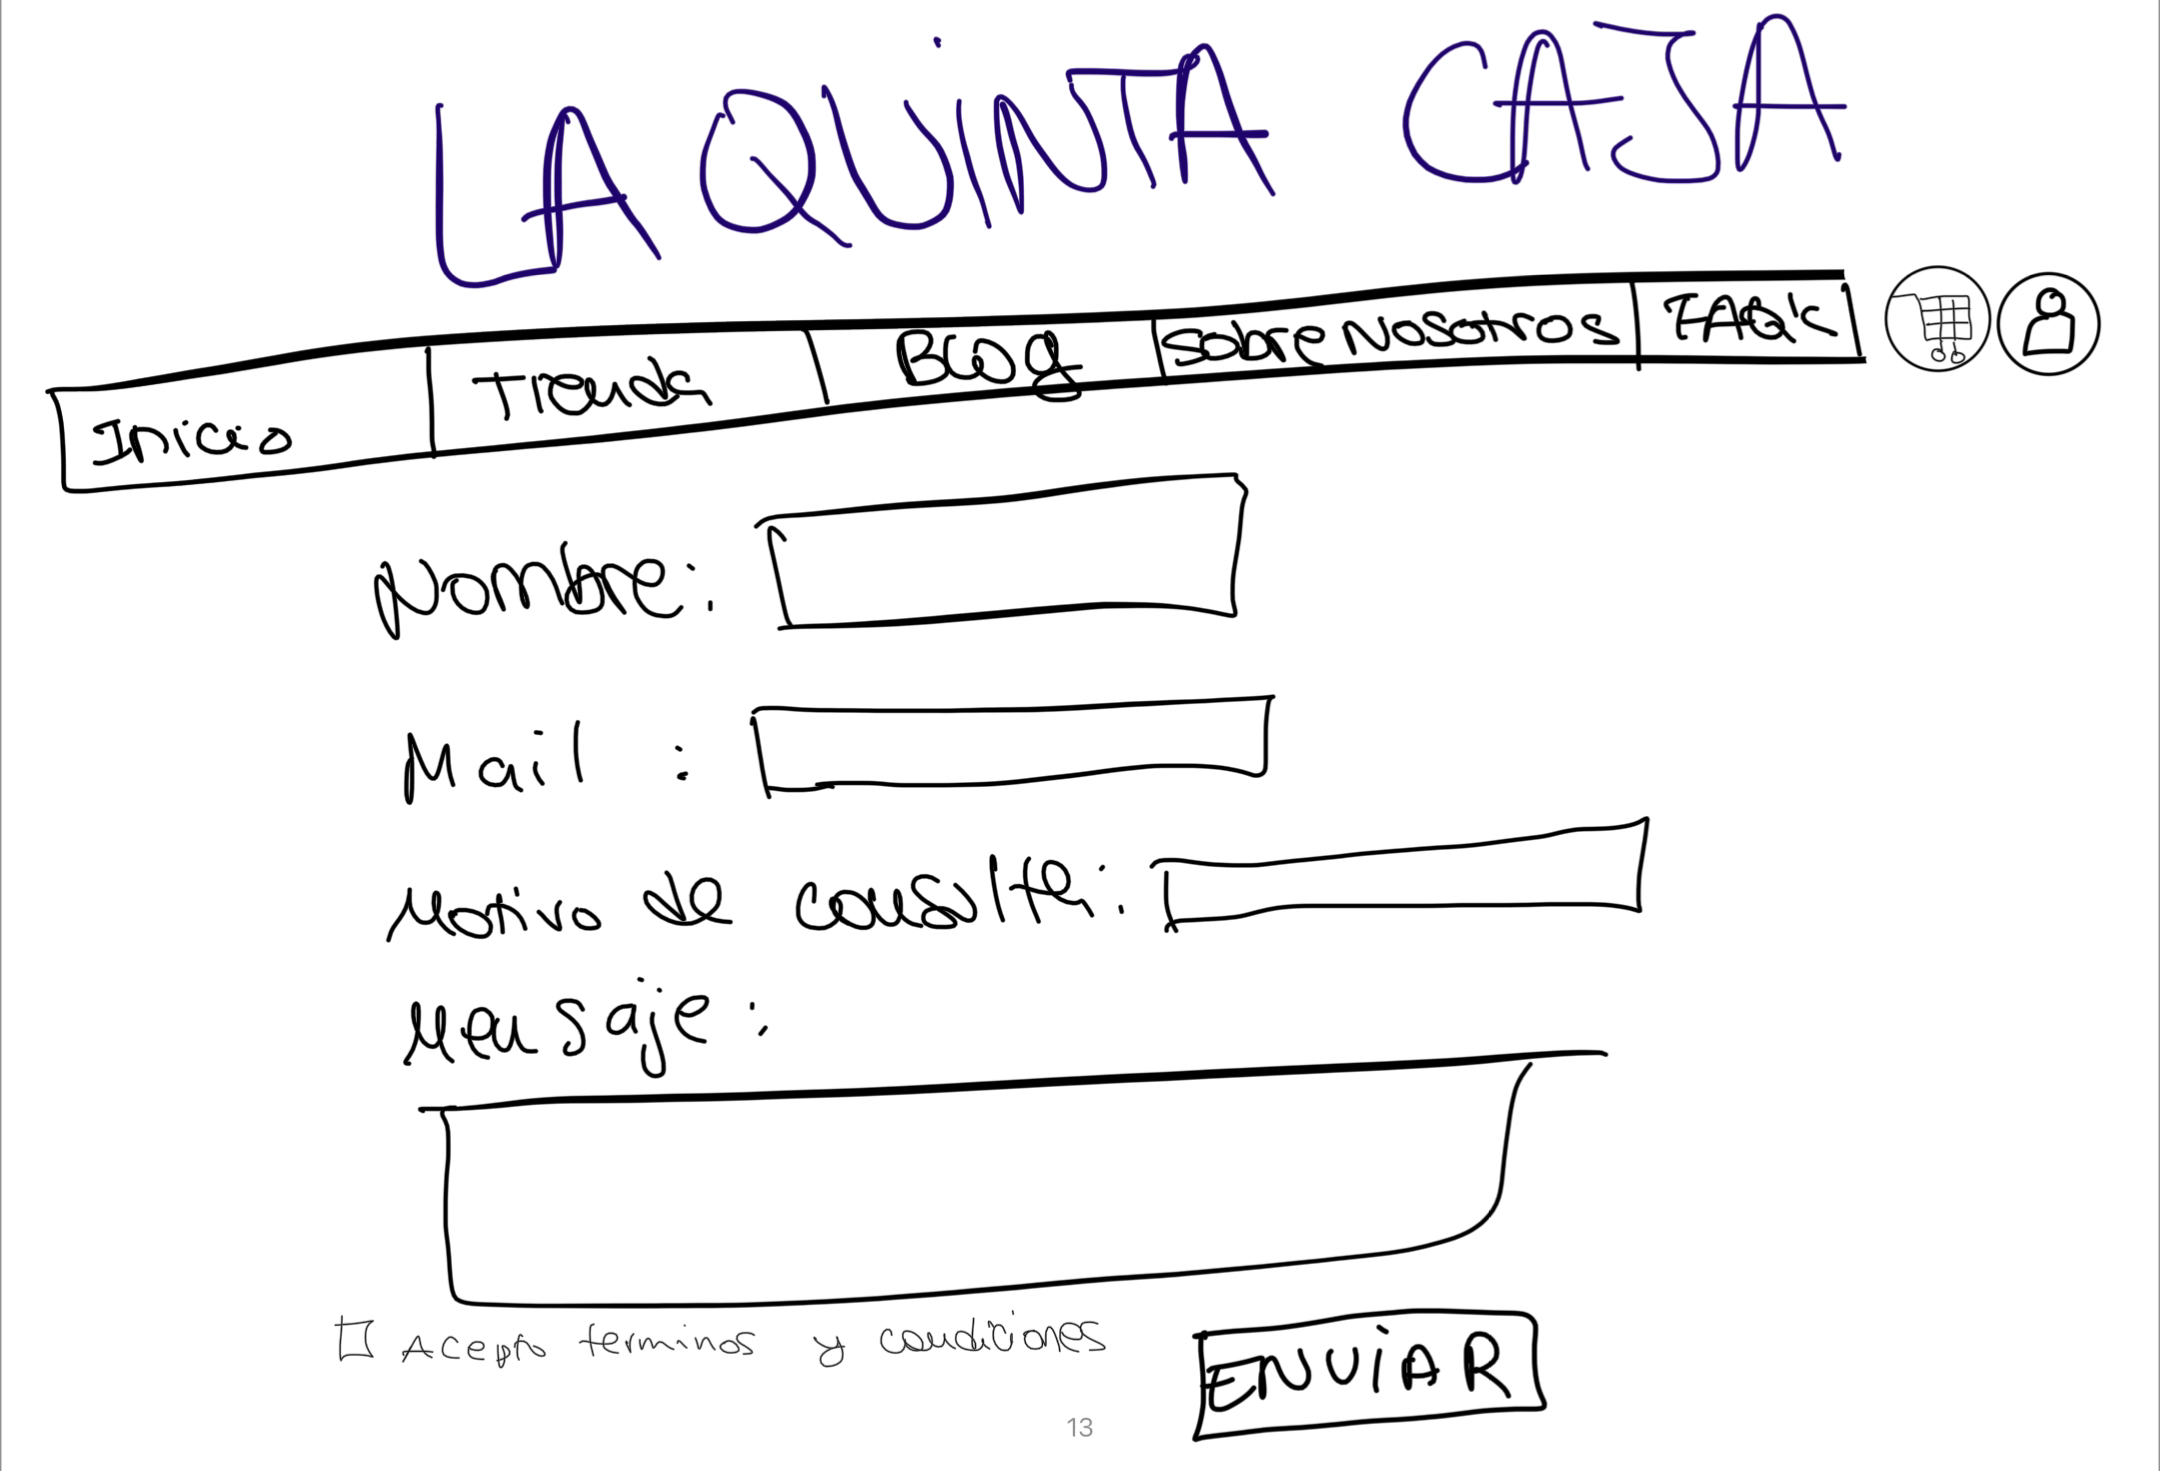 LA QUINTA CAJA
Inicio Tienda Blog Sobre Nosotros FAQ's
Nombre:
Mail :
Motivo de consulta:
Mensaje:
Acepto terminos y condiciones
ENVIAR
13